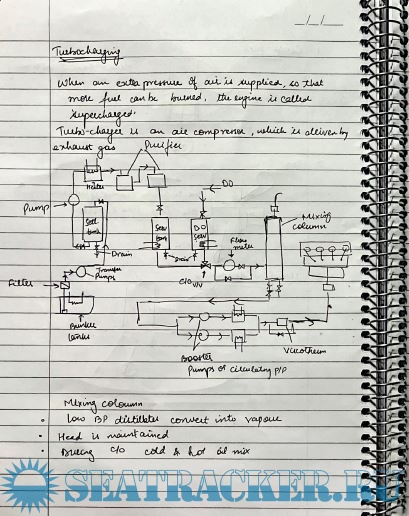 _/_/__
Turbocharging
When an extra pressure of air is supplied, so that
more fuel can be burned, the engine is called
supercharged.
Turbo-charger is an air compressor, which is driven by
exhaust gas
Purifier
Heater
DO
Pump
Sett
tank
Serv
tank
DO
Serv
Flow
meter
Mixing
column
Drain
Drain
Transfer
Pumps
Filter
C/O
V/V
Bunker
tanker
Booster
Pumps or circulating P/P
Viscotherm
Mixing coloumn
• Low BP distillates convert into vapour
• Head is maintained
• During C/O cold & hot oil mix
SEATRACKER.RU